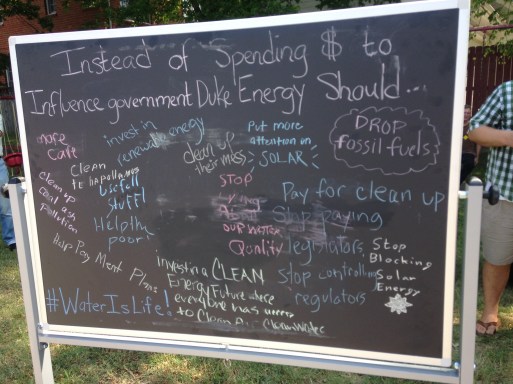 Instead of Spending $ to
Influence government Duke Energy Should...
more
Cafe
invest in
renewable energy
clean up
their mess
Put more
attention on
SOLAR
DROP
fossil fuels
Clean
Usefull
Stuff!
STOP
OUR WATER
Quality
Pay for clean up
Stop paying
legislators
stop controlling
regulators
Stop
Blocking
Solar
Energy
clean up
coal ash
pollution
Help the
poor
Pay Ment Plans
Invest in a CLEAN
Energy Future where
everyone has access
to Clean Air Clean Water
#WaterIsLife!